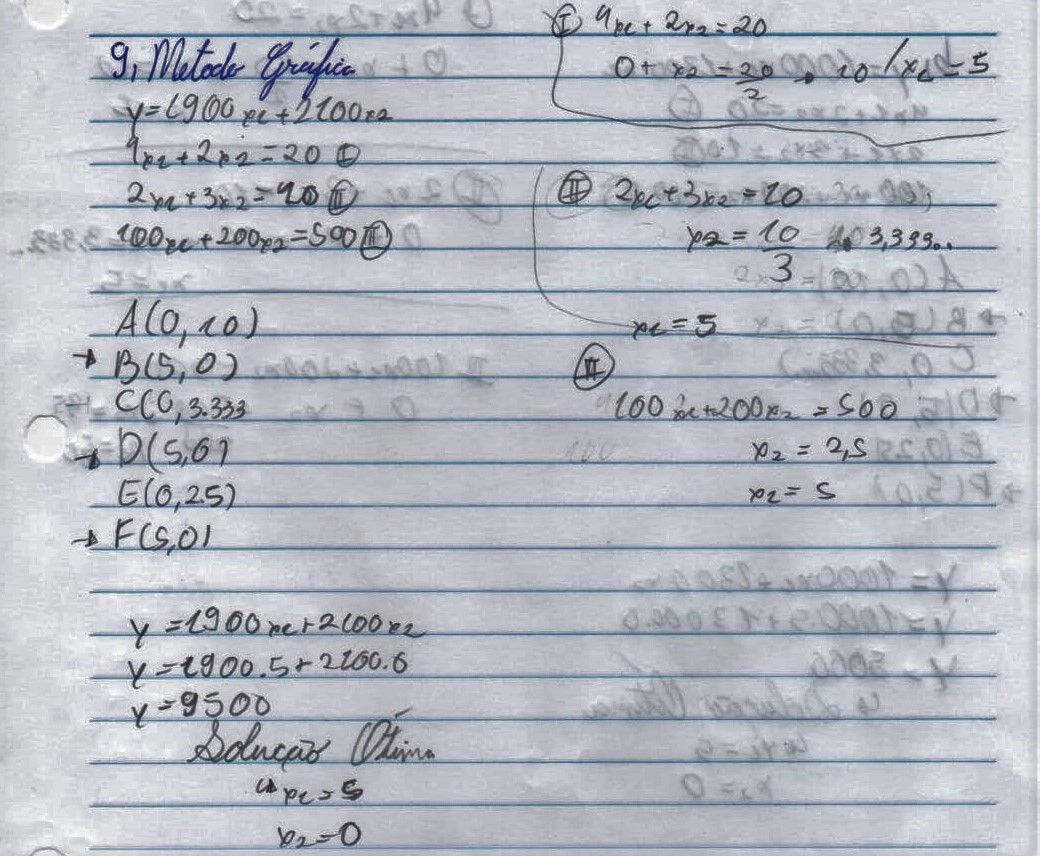 9, Metodo Gráfico
y=1900x1+2100x2
4x1+2x2=20 Ⓘ
2x1+3x2=10 Ⓘ
100x1+200x2=500 Ⓘ
A(0, 10)
→ B(5, 0)
C(0, 3.333
→ D(5,0)
E(0,2.5)
→ F(5,0)
y=1900x1+2100x2
y=1900.5+2100.0
y=9500
Solução Ótima
↳ x1=5
x2=0
Ⓘ 4x1+2x2=20
0+x2=20/2 → 10 / x1=5
Ⅱ 2x1+3x2=10
x2=10/3 3,333..
x1=5
Ⅱ
100x1+200x2=500
x2=2,5
x1=5